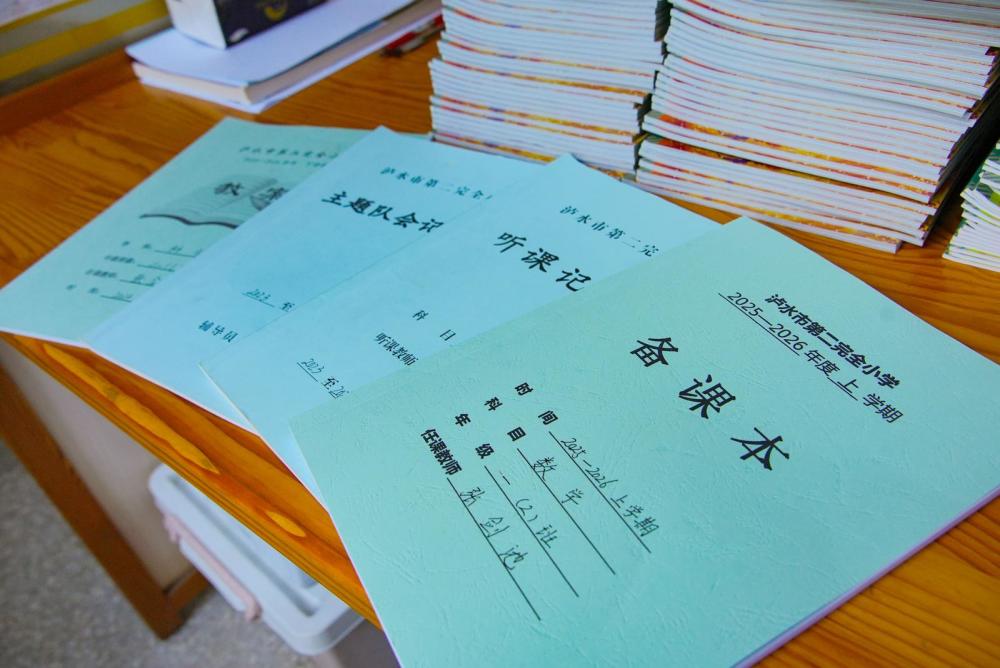 泸水市第二完全小学
2025—2026年度上学期
备课本
时间 2025-2026上学期
科目 数学
年级 一(2)班
任课教师 张剑池
泸水市第二完
听课记
科目
听课教师
2025至26
泸水市第二完全
主题队会记
2025至
辅导员
泸水市第二完全小
教案